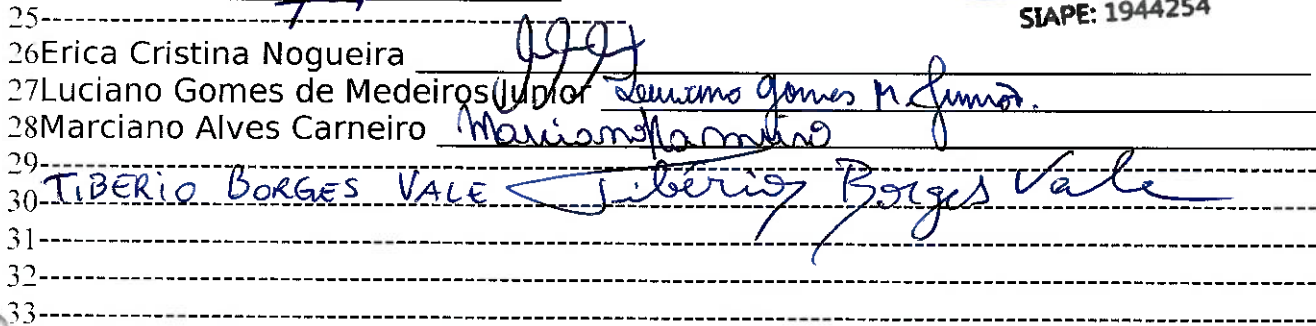 SIAPE: 1944254
25
26Erica Cristina Nogueira
27Luciano Gomes de Medeiros Junior Luciano Gomes M. Junior.
28Marciano Alves Carneiro Marciano Carneiro
29
30TIBÉRIO BORGES VALE Tibério Borges Vale
31
32
33